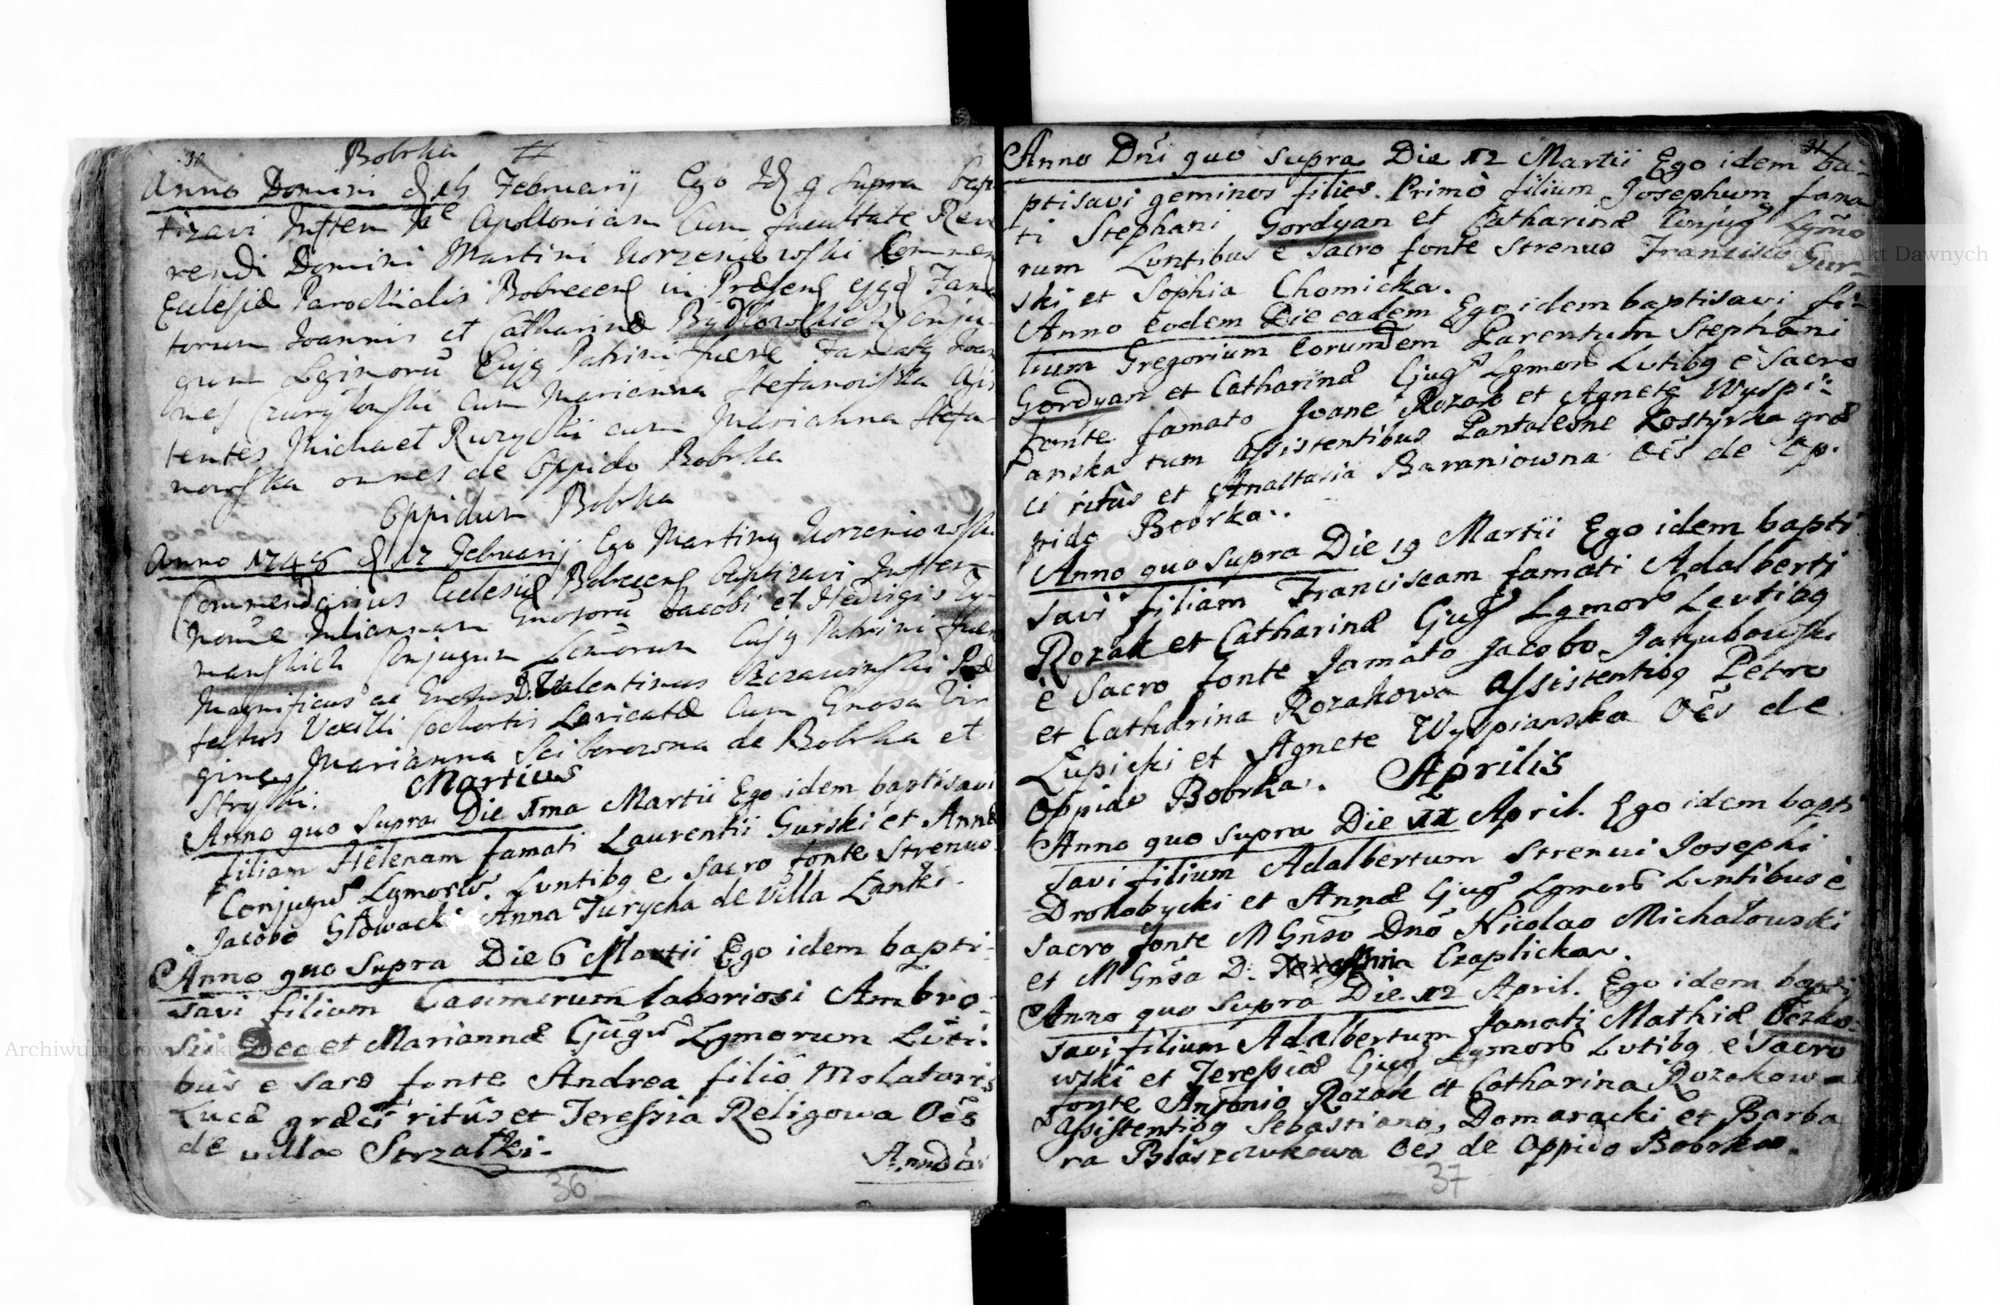 30
Bobrka
Anno Domini d 15 Februarij Ego Id q supra bap
tizavi Inften Ne Apolloniam Cum facultate Reve
rendi Domini Martini Korzeniowski Commen
Eclesiæ Parochialis Bobrecens in Præsens Fama
torum Joannis et Catharinæ Bydłowskich Conju
gum Lgimorũ Cujq Patrini fuere Famatq Joan
nes Czuryłowski cum Marianna Stefanowska Assis
tentes Michael Ruzycki cum Marianna Stefa
nowska omnes de Oppido Bobrka
Oppidum Bobrka
Anno 1748 d 17 Februarij Ego Martinq Korzeniowski
Commendarius Eclesiæ Bobrecens Baptizavi Inften
Nomine Juliannam Gnosorũ Jacobi et Hedvigis Ty
manskich Conjugum Lgmorum Cujq Patrini fuere
Magnificus ac Gnosus D. Valentinus Szczawinski Præ
fectus Vexilli Cochortis Loricatæ Cum Gnosa Vir
gine Marianna Sciborowna de Bobrka et
Stryski.
Martius
Anno quo supra Die 1ma Martii Ego idem baptisavi
filiam Helenam famati Laurentii Gurski et Annæ
Conjugũ Lgmorũ. Lvntibq e Sacro fonte Strenuo
Jacobo Głowacki Anna Turycka de Villa Łanki.
Anno quo Supra Die 6 Martii Ego idem bapti-
savi filium Casimirum laboriosi Ambro-
sii Dec et Mariannæ Cjugũ Lgmorum Lvti-
bus e Saro fonte Andrea filio Molatoris
Lucæ græci ritûs et Teressia Religowa Oẽs
de villa Strzałki.
Anno Dni
36
31
Anno Dñi quo supra Die 12 Martii Ego idem ba-
ptisavi geminos filios. Primò filium Josephum fama
ti Stephani Gordyan et Catharinæ Conjug Lgmo
rum Lvntibus e Sacro fonte Strenuo Francisco Gur-
ski et Sophia Chomicka.
Anno eodem Die eadem Ego idem baptisavi fi-
lium Gregorium Eorundem Parentum Stephani
Gordyan et Catharinæ Cjugũ Lgmorũ Lvtibq è Sacro
fonte famato Joane Rozak et Agnete Wyspi-
anska tum Assistentibus Pantaleone Kostyrka græ
ci ritûs et Anastasia Baraniowna Oẽs de Op-
pido Boorka.
Anno quo supra Die 19 Martii Ego idem bapti
savi filiam Franciscam famati Adalberti
Rozak et Catharinæ Cjugũ Lgmorũ Levtibq
è Sacro fonte famato Jacobo Jakubowski
et Catharina Rozakowa Assistentibq Petro
Łupicki et Agnete Wyspianska Oẽs de
Oppido Bobrka.
Aprilis
Anno quo supra Die 11 April. Ego idem bapti
savi filium Adalbertum Strenui Josephi
Drohobycki et Annæ Cjugũ Lgmorũ Lvntibus è
sacro fonte M Gnso Dno Nicolao Michałowski
et M Gnsa D: Czaplicka.
Anno quo supra Die 12 April. Ego idem bapti
savi filium Adalbertum famati Mathiæ Oczko-
wski et Teressiæ Cjug Lgmorũ Lvtibq e Sacro
fonte Antonio Rozak et Catharina Rozakowa
Assistentibq Sebastiano Domaracki et Barba
ra Błaszczukowa Oẽs de Oppido Boorka.
37
Archiwum Główne Akt Dawnych
Archiwum Główne Akt Dawnych